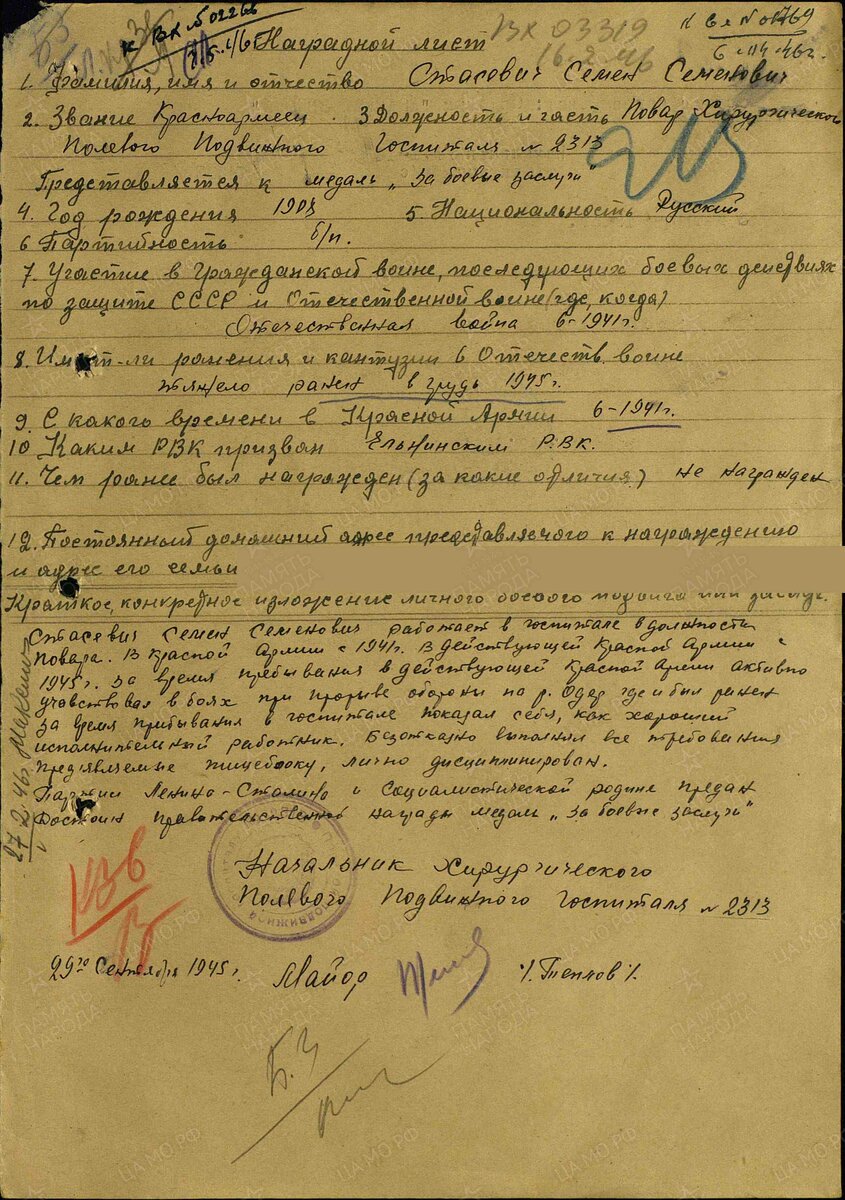 к вх №02266
Вх 03319
16.2.46
к вх №01769
6-04-46г.
Наградной лист
1. Фамилия, имя и отчество Стасевич Семен Семенович
2. Звание Красноармеец. 3 Должность и часть Повар Хирургического
Полевого Подвижного Госпиталя №2313
Представляется к медаль „За боевые заслуги"
4. Год рождения 5. Национальность Русский
6 Партийность б/п.
7. Участие в гражданской войне, последующих боевых действиях
по защите СССР и Отечественной войне (где, когда)
Отечественная война 6-1941г.
8. Имеет-ли ранения и кантузии в Отечеств. войне
тяжело ранен в грудь 1945г.
9. С какого времени в Красной Армии 6-1941г.
10 Каким РВК призван Ельнинским Р.В.К.
11. Чем ранее был награжден (за какие отличия) не награжден
12. Постоянный домашний адрес представляемого к награждению
и адрес его семьи
Краткое, конкретное изложение личного боевого подвига или заслуг.
Стасевич Семен Семенович работает в госпитале в должности
Повара. В Красной Армии с 1941г. В действующей Красной Армии с
1945г. За время пребывания в действующей Красной Армии активно
учавствовал в боях при прорыве обороны на р. Одер где и был ранен
За время прибывания в госпитале показал себя, как хороший
исполнительный работник. Безотказно выполнял все требования
предявляемые пищеблоку, лично дисциплинирован.
Партии Ленина-Сталина и социалистической родине предан
Достоин правительственной награды медаль „За боевые заслуги"
27.2.46.
Начальник хирургического
Полевого Подвижного Госпиталя №2313
29го Сентября 1945г. Майор /. Теплов /.
Б.З
ПАМЯТЬ НАРОДА
ЦАМО.РФ